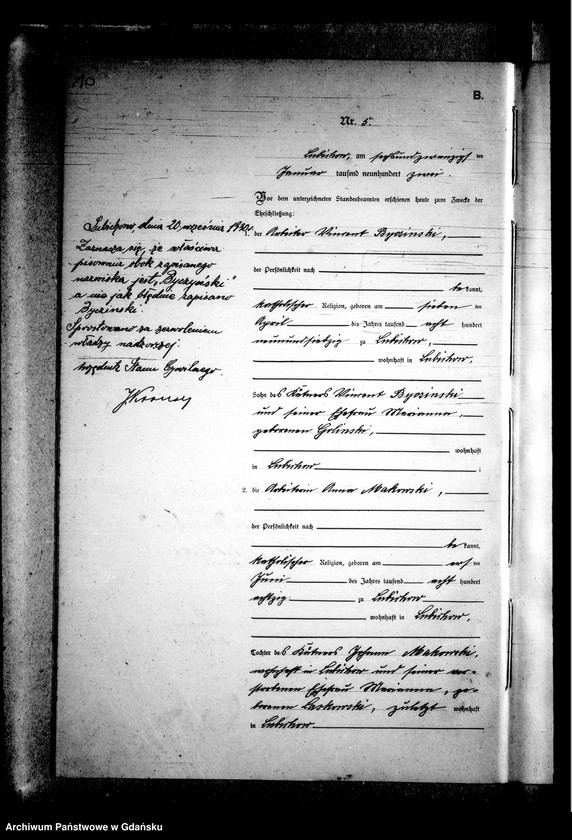 10
B.
Nr. 5.
Lubichow, am sechsundzwanzigsten
Januar tausend neunhundert zwei.
Vor dem unterzeichneten Standesbeamten erschienen heute zum Zwecke der
Eheschließung:
1. der Arbeiter Vincent Byczinski,
der Persönlichkeit nach
be kannt,
katholischer Religion, geboren am sieben ten
April des Jahres tausend acht hundert
neunundsiebzig zu Lubichow,
wohnhaft in Lubichow,
Sohn des Kätners Vincent Byczinski
und seiner Ehefrau Marianna,
geborenen Golinski,
wohnhaft
in Lubichow ;
2. die Arbeiterin Anna Makowski,
der Persönlichkeit nach
be kannt,
katholischer Religion, geboren am ersten
Juni des Jahres tausend acht hundert
achtzig zu Lubichow
, wohnhaft in Lubichow,
Tochter des Kätners Johann Makowski,
wohnhaft in Lubichow und seiner ver-
storbenen Ehefrau Marianna, ge-
borenen Laskowski, zuletzt wohnhaft
in Lubichow
Lubichowo, dnia 20 września
Zaznacza się, że właściwa
pisownia obok zapisanego
nazwiska jest „Byczyński"
a nie jak błędnie zapisano
Byczinski.
Sprostowano za zezwoleniem
władzy nadzorczej.
Urzędnik Stanu Cywilnego
Archiwum Państwowe w Gdańsku